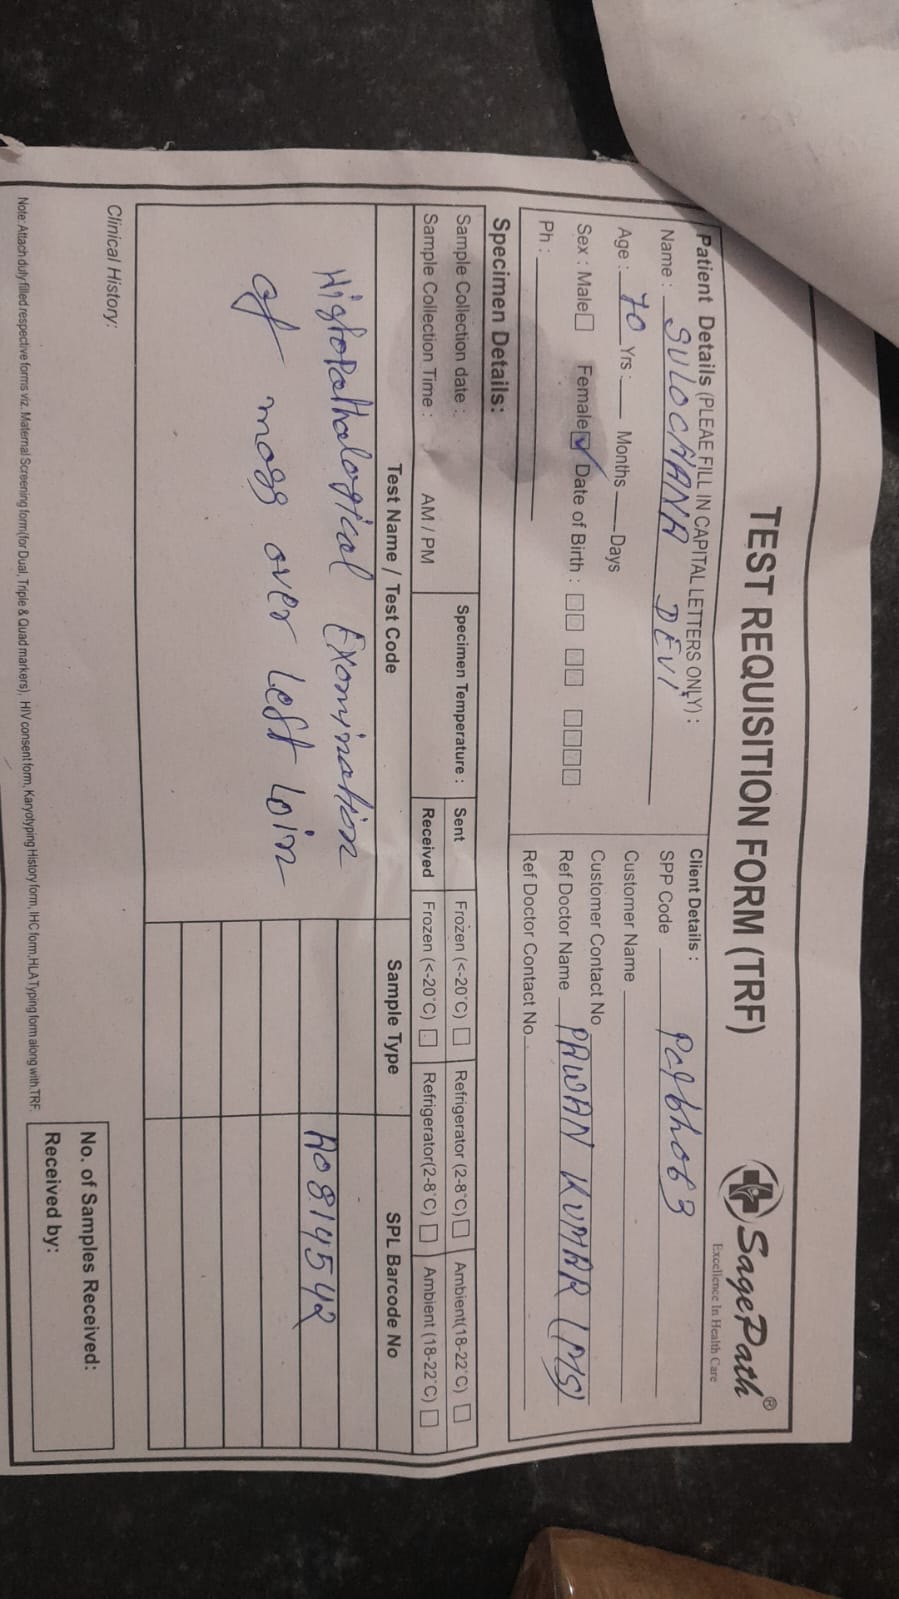 TEST REQUISITION FORM (TRF)
SagePath®
Excellence In Health Care
Patient Details (PLEAE FILL IN CAPITAL LETTERS ONLY) :
Name : SULOCHANA DEVI
Age : 70 Yrs : Months Days
Sex : Male Female ☑ Date of Birth :
Ph :
Client Details :
SPP Code
Customer Name
Customer Contact No
Ref Doctor Name PAWAN KUMAR (MS)
Ref Doctor Contact No.
Specimen Details:
Sample Collection date :
Sample Collection Time : AM / PM
Specimen Temperature :
Sent Frozen (<-20°C) Refrigerator (2-8°C) Ambient(18-22°C)
Received Frozen (<-20°C) Refrigerator(2-8°C) Ambient (18-22°C)
Test Name / Test Code Sample Type SPL Barcode No
Histopathalogical Examination
of mass over Left Loin
Clinical History:
No. of Samples Received:
Received by:
Note: Attach duly filled respective forms viz. Maternal Screening form(for Dual, Triple & Quad markers), HIV consent form, Karyotyping History form, IHC form,HLA Typing form along with.TRF.